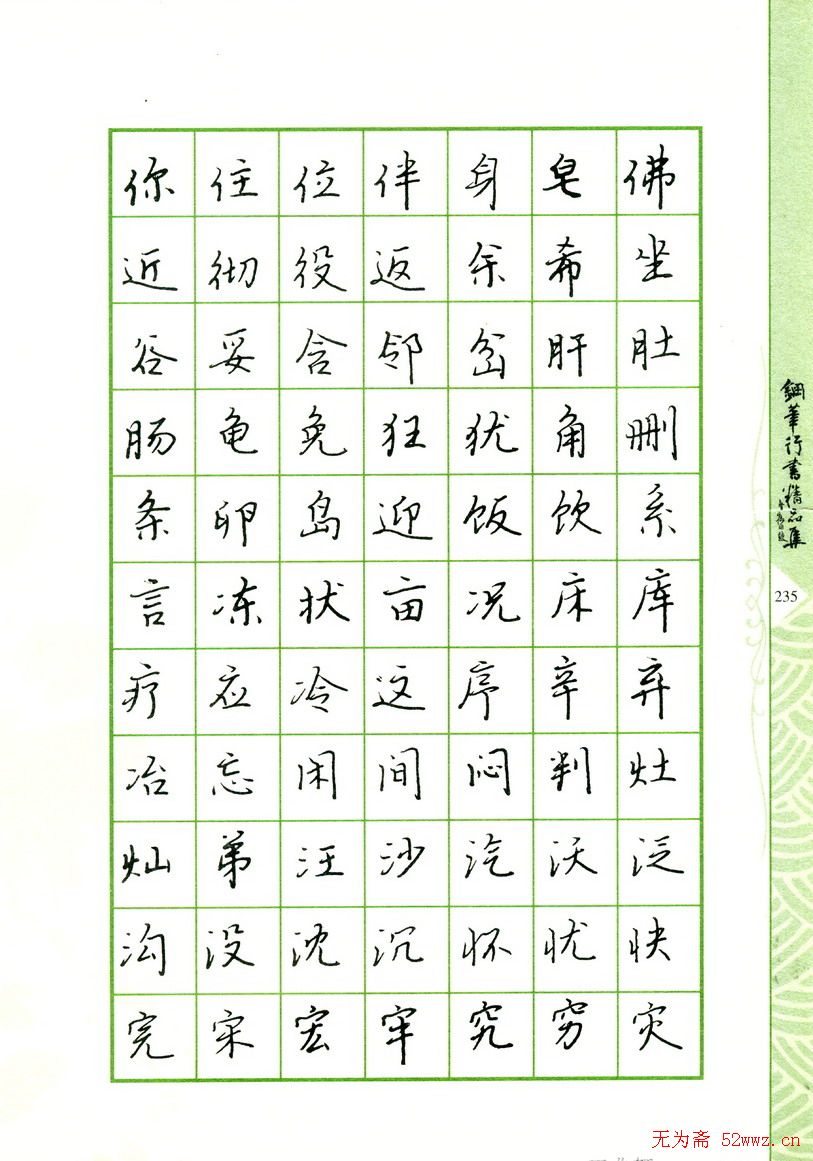 你住位伴身皂佛
近彻役返余希坐
谷妥含邻岔肝肚
肠龟免狂犹角删
条卵岛迎饭饮系
言冻状亩况床库
疗应冷这序辛弃
冶忘闲间闷判灶
灿弟汪沙汽沃泛
沟没沈沉怀忧快
完宋宏牢究穷灾
鋼筆行書精品集
235
无为斋 52wwz.cn